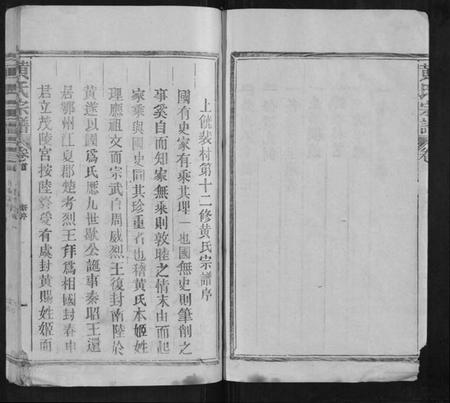 黃氏宗譜
卷
上饒裴村第十二修黃氏宗譜序
國有史家有乘其理一也國無史則筆削之
事奚自而知家無乘則敦睦之情末由而起
家乘與國史同其珍重者也稽黃氏本姬姓
理應祖文而宗武自周威烈王復封南陸於
黃遂以國爲氏歷九世歇公詭事秦昭王還
居鄂州江夏郡楚考烈王拜爲相國封春申
君立茂陵宮按陸終受有處封黃賜姓姬而
黃氏宗譜
卷首